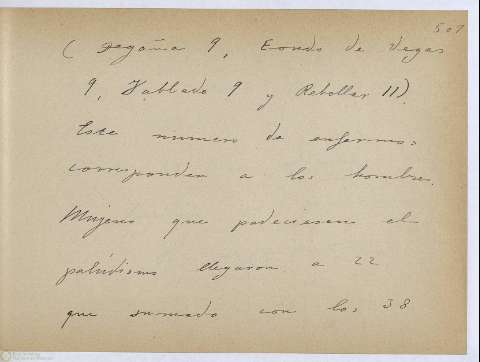 507
( Degaña 9, Cerredo de Degaña
9, Tablado 9 y Rebollar 11).
Este numero de enfermos
corresponden a los hombres.
Mujeres que padeciesen el
paludismo llegaron a 22
que sumado con los 38